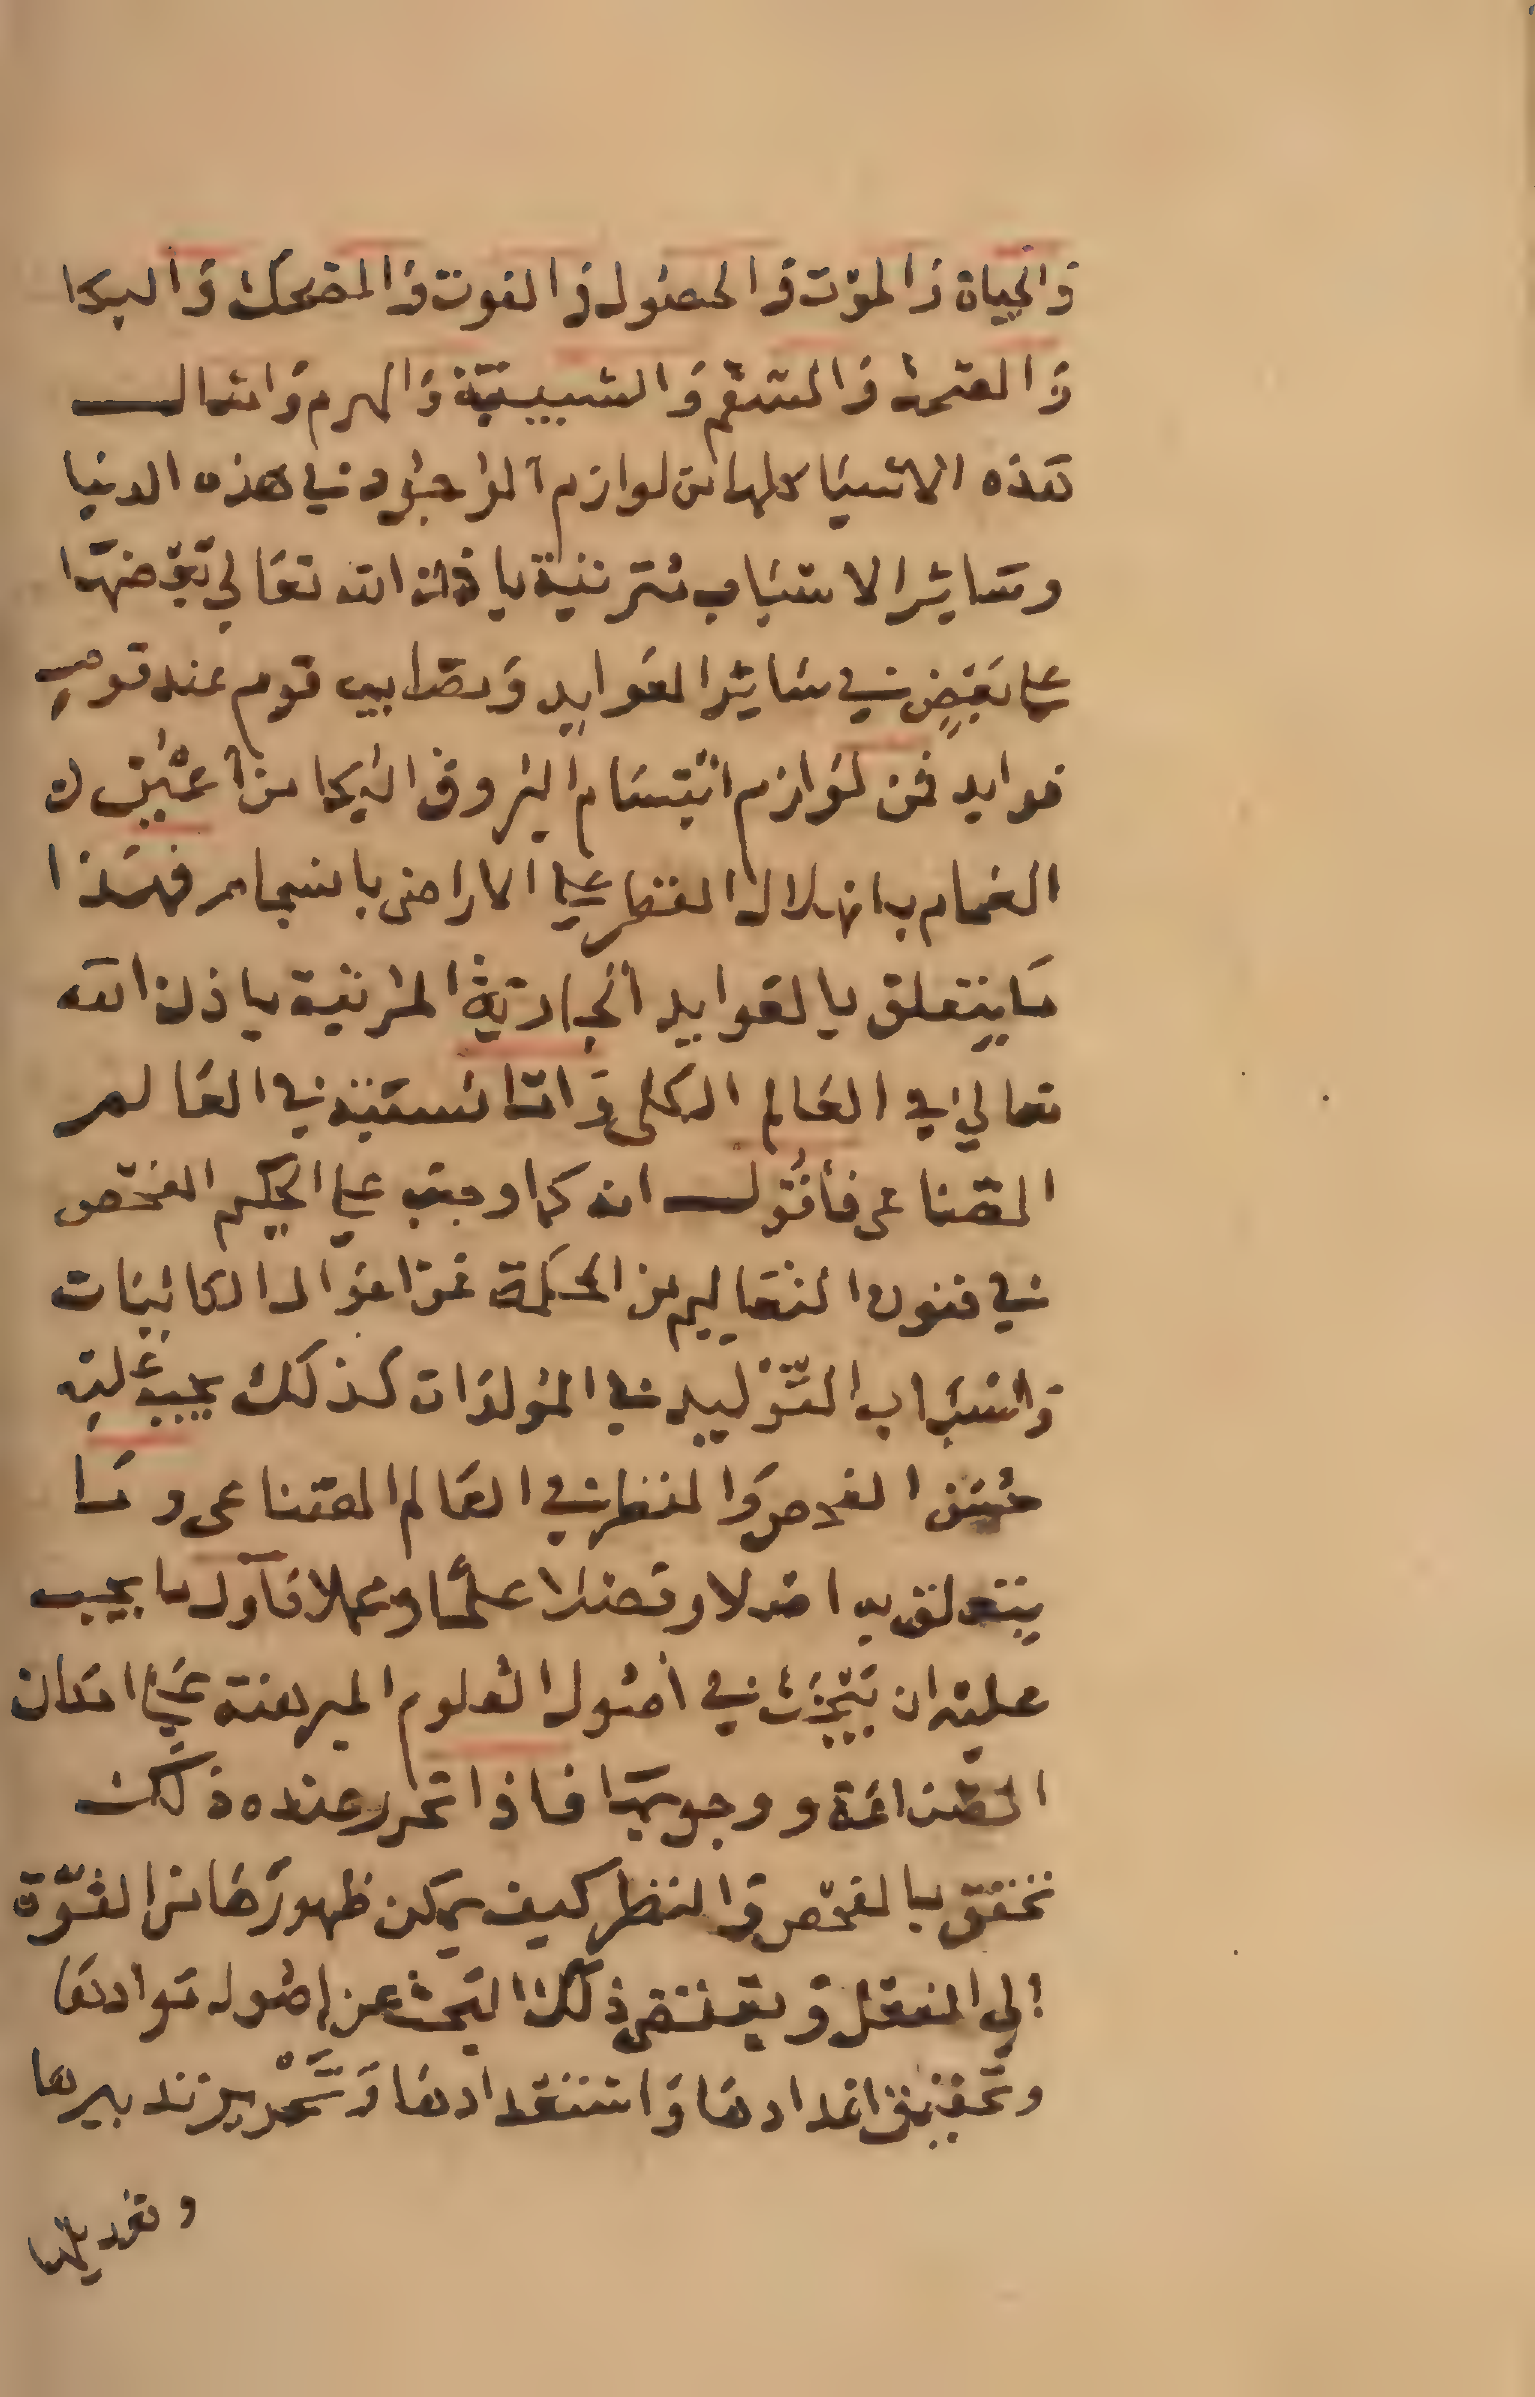 والحياة والموت والحصول والفوت والمضحك والبكا
والصحة والسقم والشبيبة والهرم وامثال
هذه الاشيا كلها من لوازم الوجود في هذه الدنيا
وسائر الاسباب مترتبة باذن الله تعالى بعضها
على بعض في سائر العوايد ومصايب قوم عند قوم
فوايد فمن لوازم ابتسام البروق البكا من اعين
الغمام بانهلال القطر على الاراضى بانسجام فهذا
ما يتعلق بالعوايد الجارية المرتبة باذن الله
تعالى في العالم الكلى واما نسبته في العالم
الصناعى فأقول انه كما وجب على الحكيم الفحص
في فنون التعاليم من الحكمة عن احوال الكائنات
واسباب التوليد في المولدات كذلك يجب عليه
حسن الفحص والنظر في العالم الصناعى وما
يتعلق به اصلا وفصلا علما وعملا فأول ما يجب
عليه ان يبحث في أصول العلوم المبرهنة على امكان
الصناعة ووجوبها فاذا تحرر عنده ذلك
تحقق بالفحص والنظر كيف يمكن ظهورها من القوة
الى الفعل ويقتضى ذلك البحث عن اصول موادها
وتحقيق اعدادها واستعدادها وتحرير تدبيرها
وتعديلها